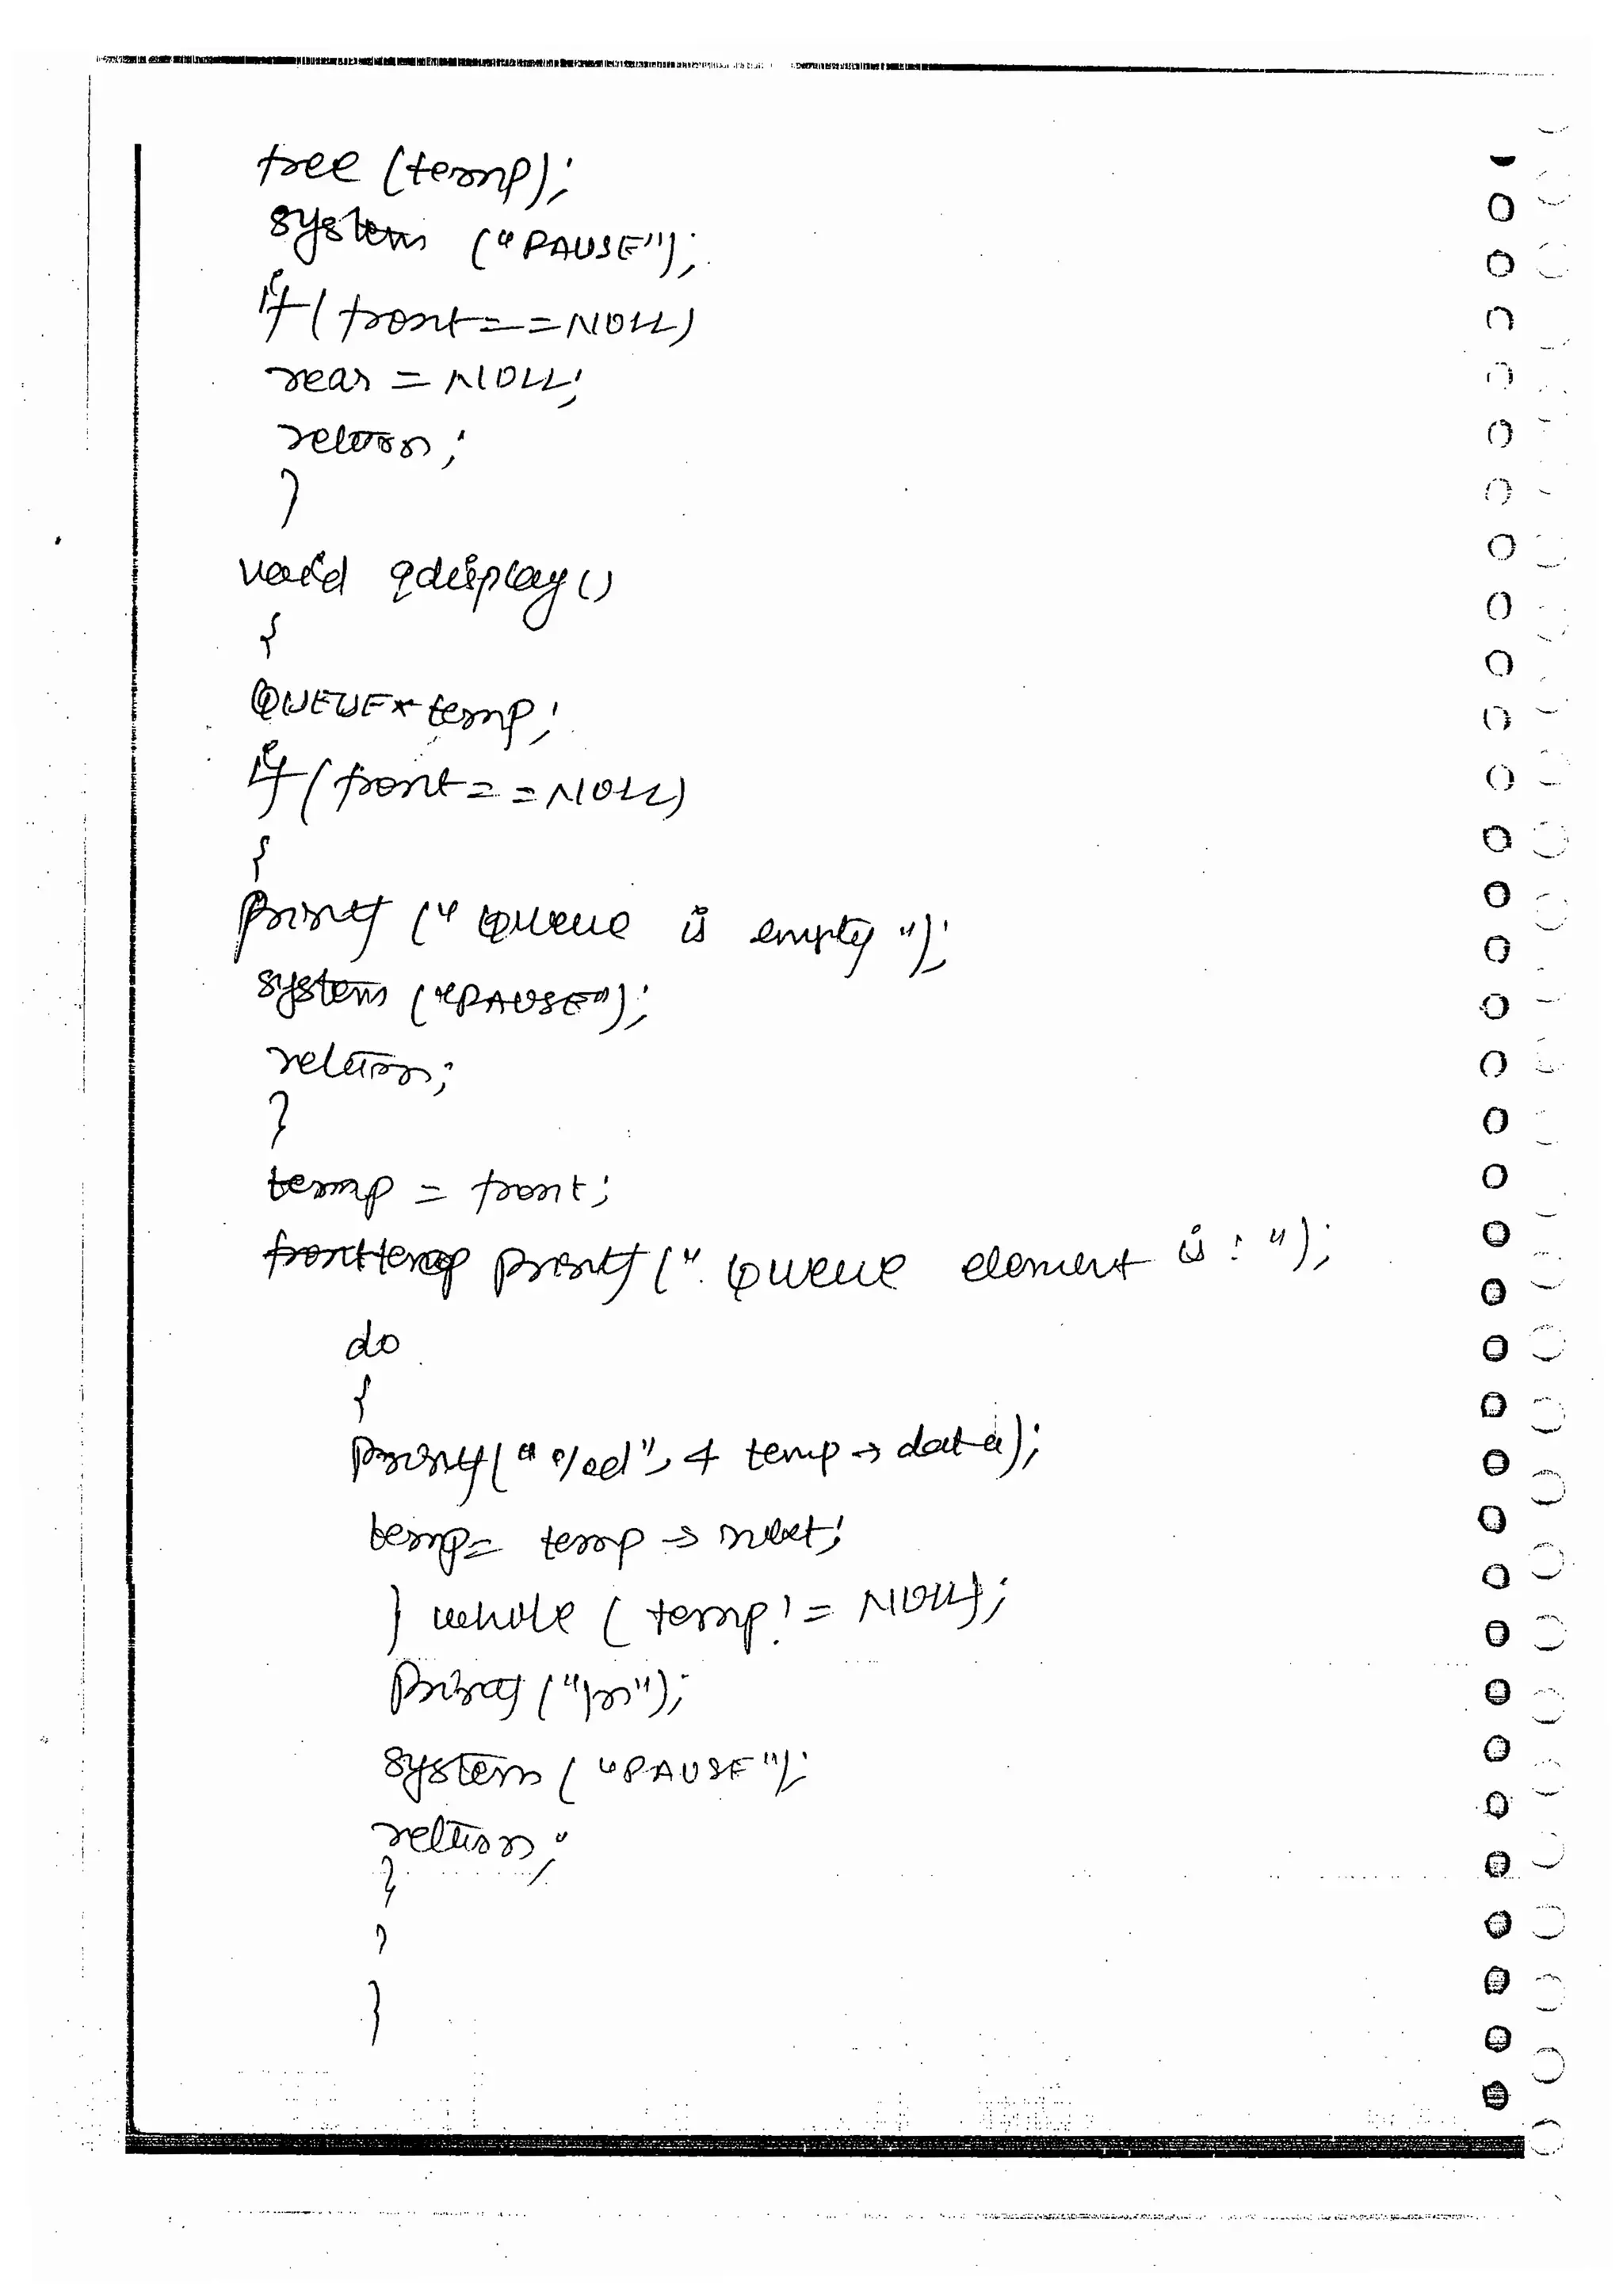 free (temp);
system ("PAUSE");
if (front==NULL)
rear = NULL;
return;
}
void qdisplay ()
{
QUEUE* temp;
if (front==NULL)
{
printf ("Queue is empty");
system ("PAUSE");
return;
}
temp = front;
printf (" Queue element is : ");
do
{
printf("%d", temp → data);
temp= temp → next;
} while (temp != NULL);
printf ("\n");
system ("PAUSE");
return;
}
}
}